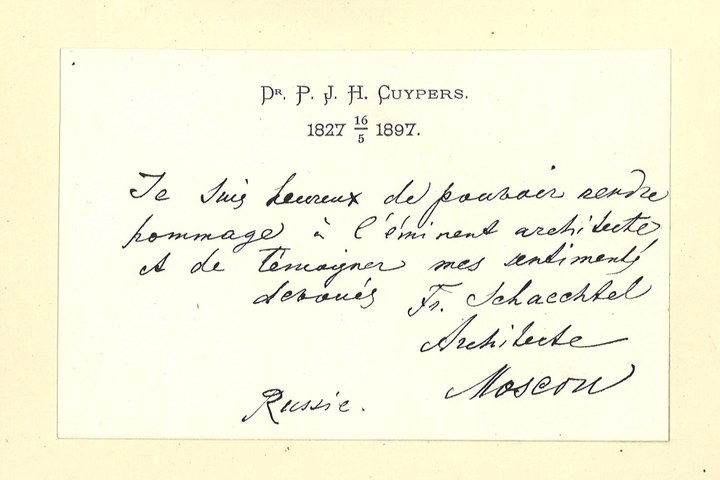 Dr. P. J. H. Cuypers.
1827 16/5 1897.
Je suis heureux de pouvoir rendre
hommage à l'éminent architecte
et de témoigner mes sentiments
devoués Fr. Schaechtel
Architecte
Moscou
Russie.